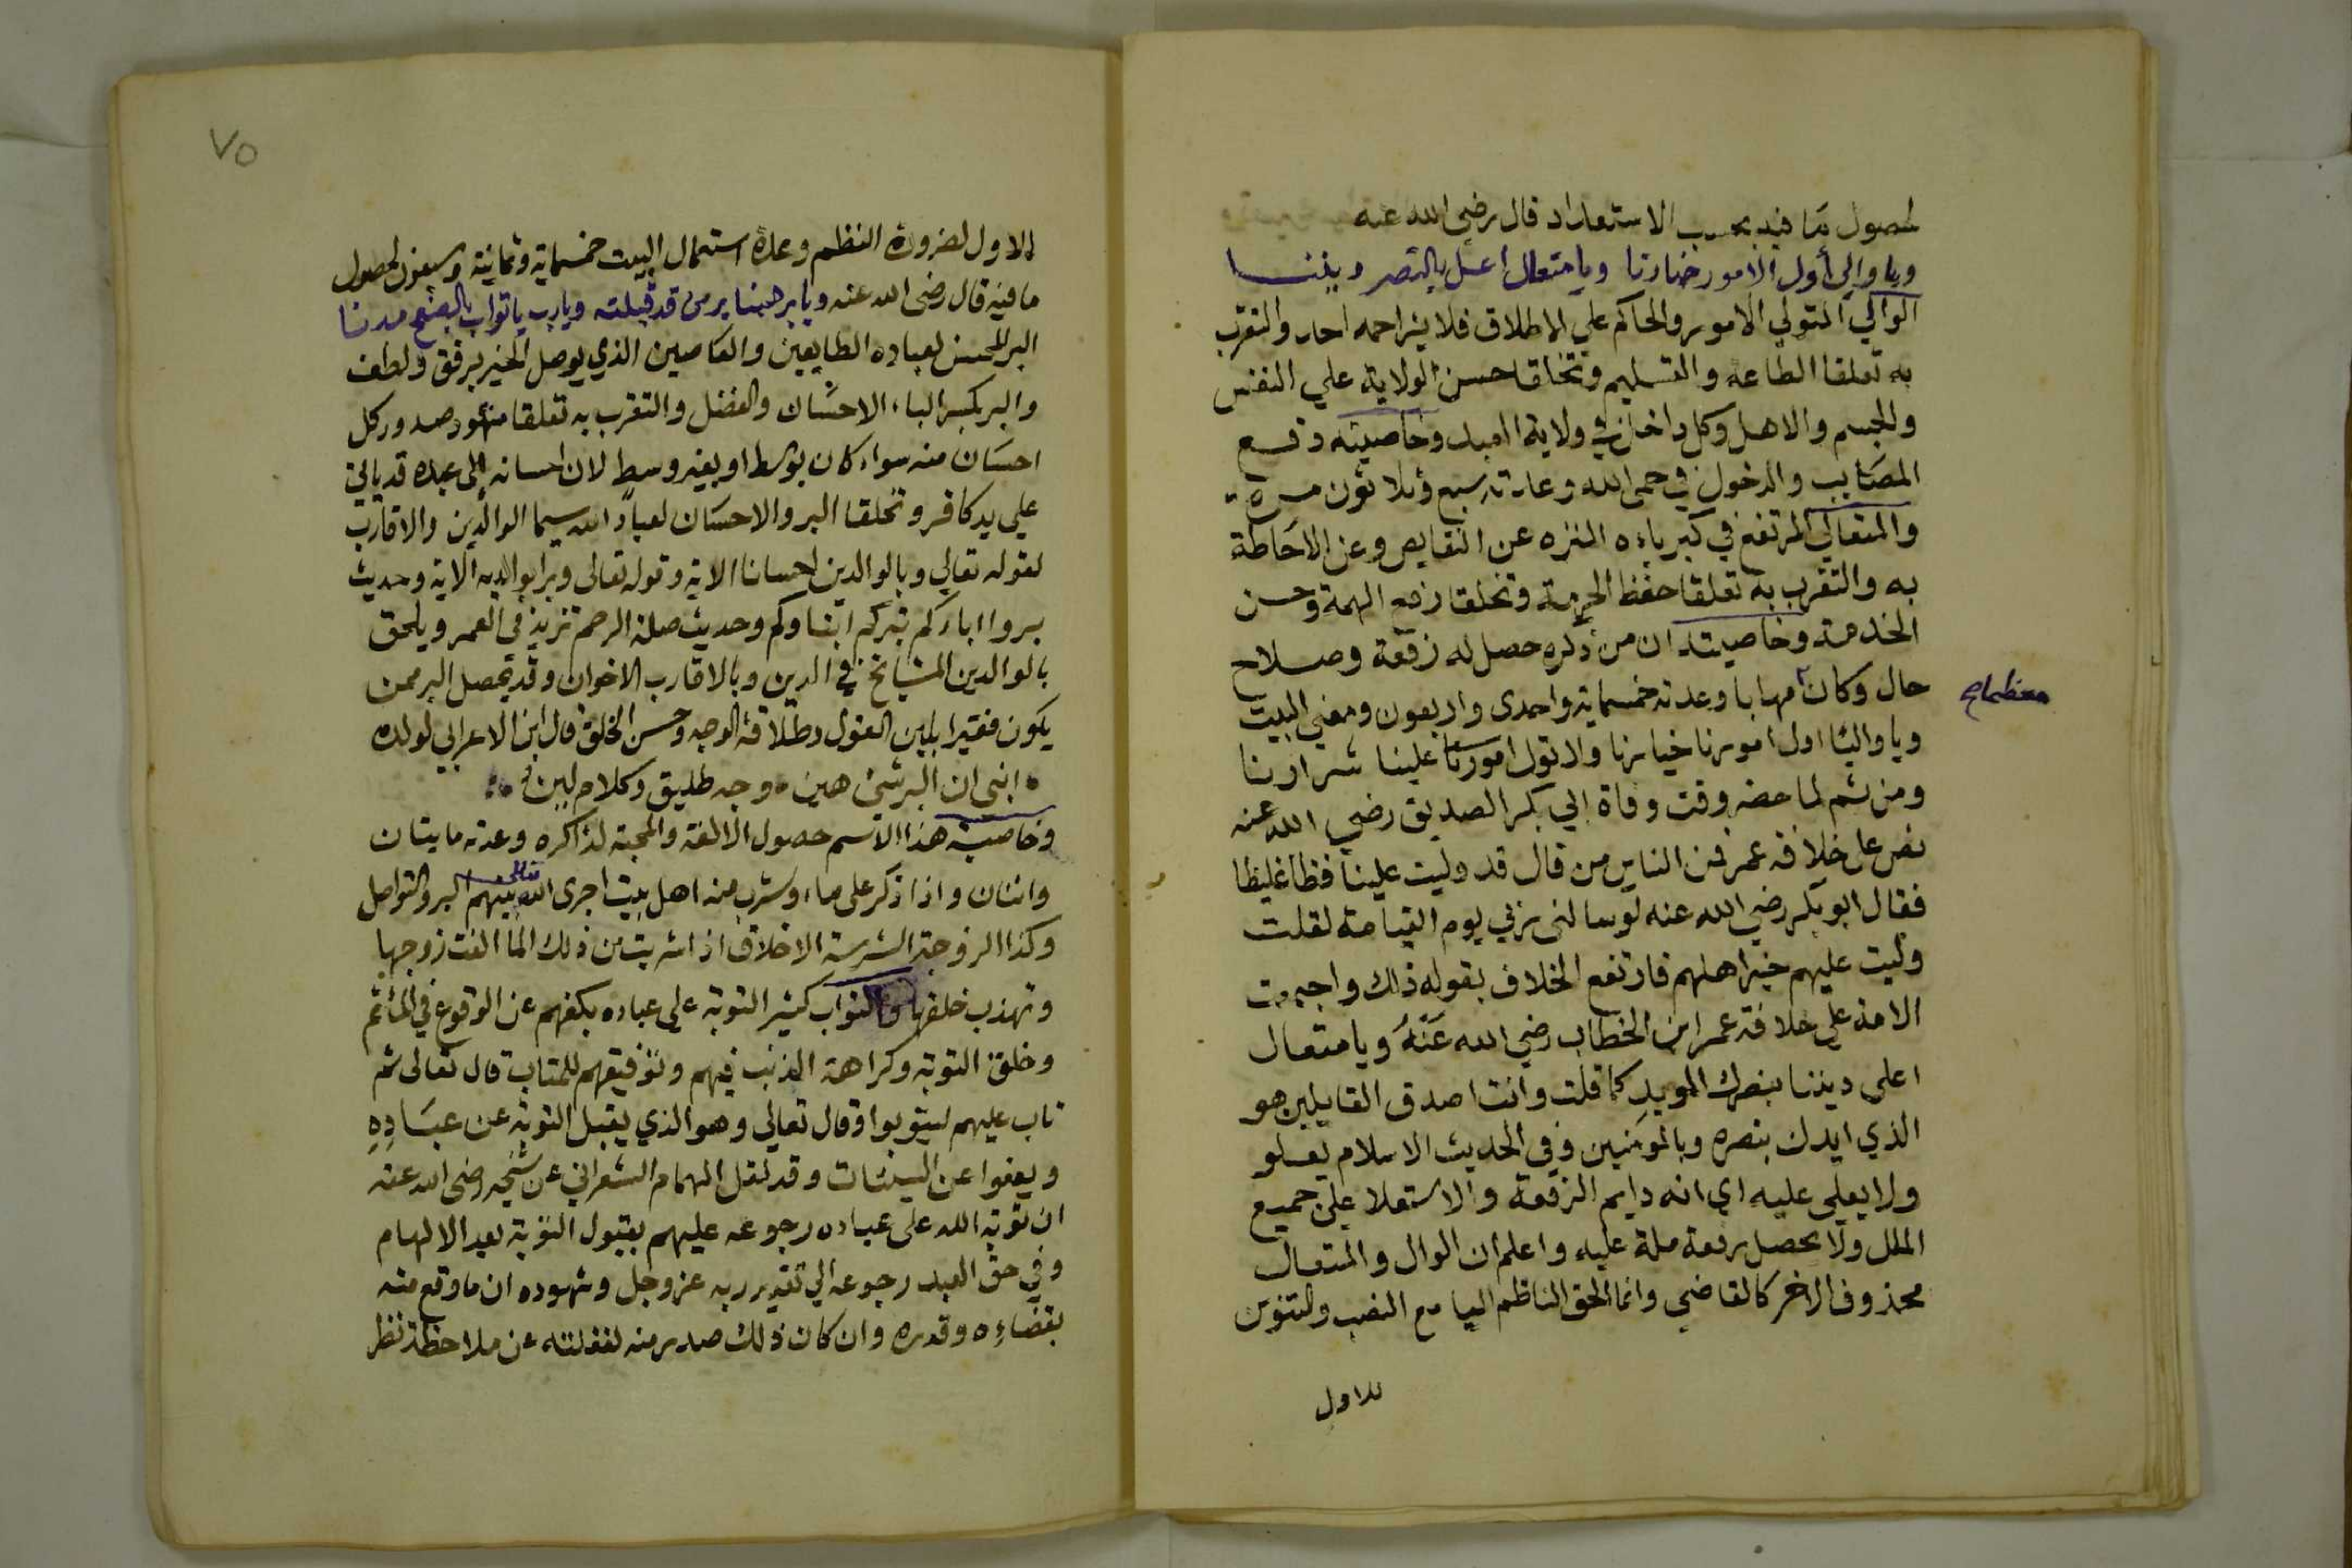 لحصول ما فيه بحسب الاستعداد قال رضي الله عنه
ويا والي أول الامور خيارنا ويا متعال اعل بالنصر ديننا
الوالي المتولي الامور والحاكم علي الاطلاق فلا يزاحمه احد والتقرب
به تعلقا الطاعة والتسليم وتخلقا حسن الولاية علي النفس
والجسم والاهل وكل داخل في ولاية العبد وخاصيته دفع
المصايب والدخول في حمى الله وعدته سبع وثلاثون مرة
والمتعالي المرتفع في كبرياءه المنزه عن النقايص وعن الاحاطة
به والتقرب به تعلقا حفظ الحرمة وتخلقا رفع الهمة وحسن
الخدمة وخاصيته ان من ذكره حصل له رفعة وصلاح
حال وكان مهابا وعدته خمسماية واحدى واربعون ومعني البيت
معظما صح
ويا واليا اول امورنا خيارنا ولا تول امورنا علينا شرارنا
ومن ثم لما حضر وقت وفاة ابي بكر الصديق رضي الله عنه
نص على خلافة عمر فمن الناس من قال قد وليت علينا فظا غليظا
فقال ابو بكر رضي الله عنه لو سالني ربي يوم القيامة لقلت
وليت عليهم خير اهلهم فارتفع الخلاف بقوله ذلك واجمعت
الامة علي خلافة عمر ابن الخطاب رضي الله عنه ويا متعال
اعلى ديننا بنصرك المويد كما قلت وانت اصدق القايلين هو
الذي ايدك بنصره وبالمومنين وفي الحديث الاسلام يعلو
ولا يعلى عليه اي انه دايم الرفعة والاستعلا علي جميع
الملل ولا يحصل رفعة ملة عليه واعلم ان الوال والمتعال
محذوف الاخر كالقاضي وانما الحق الناظم اليا مع النصب والتنوين
للاول
٧٥
للاول لضرورة النظم وعدة استعمال البيت خمسماية وثمانية وسبعون لحصول
ما فيه قال رضي الله عنه ويا بر هبنا بر من قد قبلته ويا رب يا تواب بالصفح مدنا
البر المحسن لعباده الطايعين والعاصين الذي يوصل الخير برفق ولطف
والبر بكسر الباء الاحسان والفضل والتقرب به تعلقا شهود صدور كل
احسان منه سواء كان بوسط او بغير وسط لان احسانه الى عبده قد ياتي
علي يد كافر وتخلقا البر والاحسان لعباد الله سيما الوالدين والاقارب
لقوله تعالي وبالوالدين احسانا الاية وقوله تعالى وبرا بوالديه الاية وحديث
بروا اباءكم تبركم ابناوكم وحديث صلة الرحم تزيد في العمر ويلحق
بالوالدين المشايخ في الدين وبالاقارب الاخوان وقد يحصل البر ممن
يكون فقيرا بلين القول وطلاقة الوجه وحسن الخلق قال ابن الاعرابي لولده
ابني ان البر شئ هين ، وجه طليق وكلام لين
وخاصية هذا الاسم حصول الالفة والمحبة لذاكره وعدته مايتان
واثنان واذا ذكر على ماء وشرب منه اهل بيت اجرى الله تعالى بينهم البر والتواصل
وكذا الزوجة الشرسة الاخلاق اذا شربت من ذلك الما الفت زوجها
وتهذب خلقها والتواب كثير التوبة على عباده بكفهم عن الوقوع في المأثم
وخلق التوبة وكراهة الذنب فيهم وتوفيقهم للمتاب قال تعالى ثم
تاب عليهم ليتوبوا وقال تعالي وهو الذي يقبل التوبة عن عباده
ويعفوا عن السيئات وقد نقل الهمام الشعراني عن شيخه رضي الله عنه
ان توبة الله على عباده رجوعه عليهم بقبول التوبة بعد الالهام
وفي حق العبد رجوعه الي تقدير ربه عز وجل وشهوده ان ما وقع منه
بقضاءه وقدره وان كان ذلك صدر منه لغفلته عن ملاحظة نظر